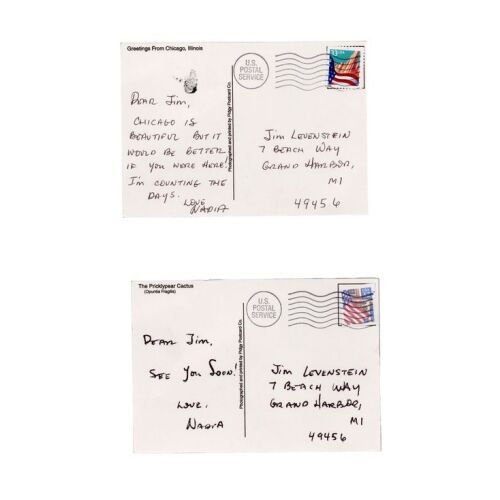 Greetings From Chicago, Illinois
U.S.
POSTAL
SERVICE
DEAR JIM,
CHICAGO IS
BEAUTIFUL BUT IT
WOULD BE BETTER
IF YOU WERE HERE!
I'M COUNTING THE
DAYS.
LOVE
NADIA
Photographed and printed by Pidgy Postcard Co.
JIM LEVENSTEIN
7 BEACH WAY
GRAND HARBOR,
MI
49456
The Pricklypear Cactus
(Opuntia Fragilis)
U.S.
POSTAL
SERVICE
DEAR JIM,
SEE YOU SOON!
LOVE,
NADIA
Photographed and printed by Pidgy Postcard Co.
JIM LEVENSTEIN
7 BEACH WAY
GRAND HARBOR,
MI
49456